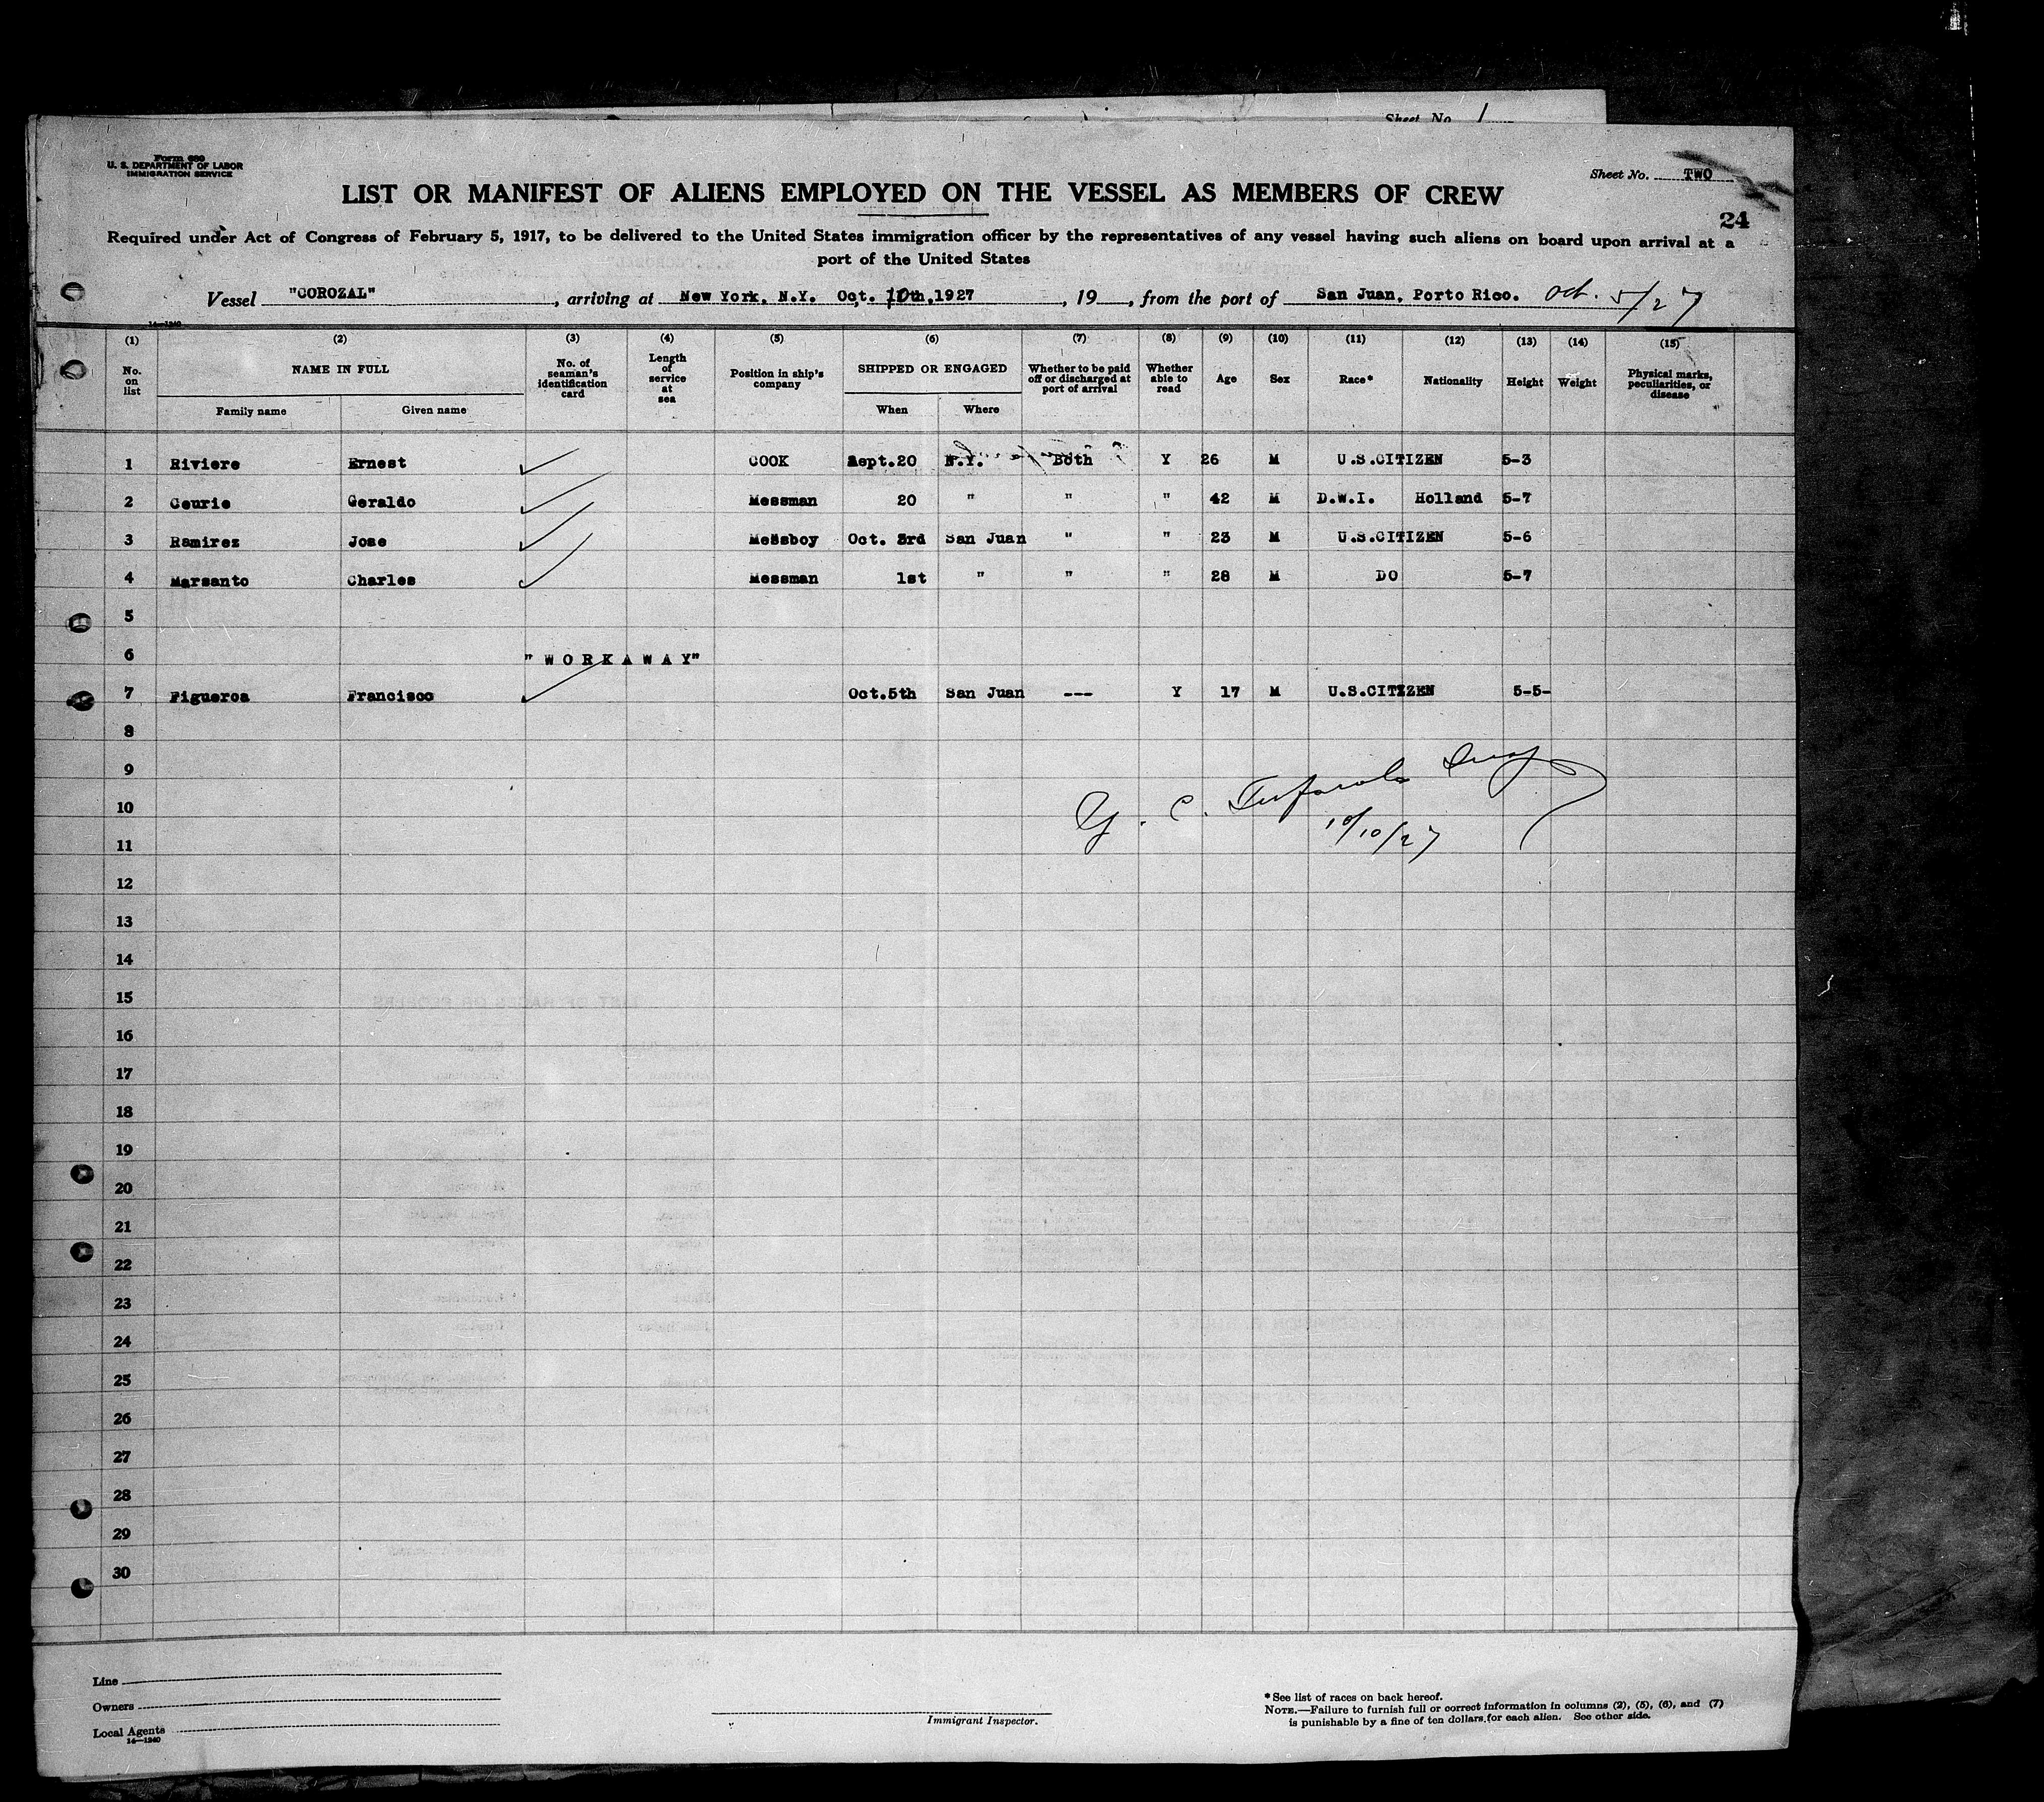 Sheet No. 1
Form 680
U. S. DEPARTMENT OF LABOR
IMMIGRATION SERVICE
Sheet No. TWO
LIST OR MANIFEST OF ALIENS EMPLOYED ON THE VESSEL AS MEMBERS OF CREW
24
Required under Act of Congress of February 5, 1917, to be delivered to the United States immigration officer by the representatives of any vessel having such aliens on board upon arrival at a
port of the United States
Vessel "COROZAL", arriving at New York, N.Y. Oct. 10th, 1927, 19, from the port of San Juan, Porto Rico. Oct. 5/27
14—1240
(1) (2) (3) (4) (5) (6) (7) (8) (9) (10) (11) (12) (13) (14) (15)
No. on list NAME IN FULL No. of seaman's identification card Length of service at sea Position in ship's company SHIPPED OR ENGAGED Whether to be paid off or discharged at port of arrival Whether able to read Age Sex Race* Nationality Height Weight Physical marks, peculiarities, or disease
Family name Given name When Where
1 Riviere Ernest COOK Sept.20 N.Y. Both Y 26 M U.S.CITIZEN 5-3
2 Ceurie Geraldo Messman 20 " " " 42 M D.W.I. Holland 5-7
3 Ramirez Jose Messboy Oct. 3rd San Juan " " 23 M U.S.CITIZEN 5-6
4 Marsanto Charles Messman 1st " " " 28 M DO 5-7
5
6 "WORKAWAY"
7 Figueroa Francisco Oct.5th San Juan --- Y 17 M U.S.CITIZEN 5-5-
8
9
10
11
10/10/27
12
13
14
15
16
17
18
19
20
21
22
23
24
25
26
27
28
29
30
Line
Owners
Local Agents
14—1240
Immigrant Inspector.
*See list of races on back hereof.
NOTE.—Failure to furnish full or correct information in columns (2), (5), (6), and (7)
is punishable by a fine of ten dollars for each alien. See other side.